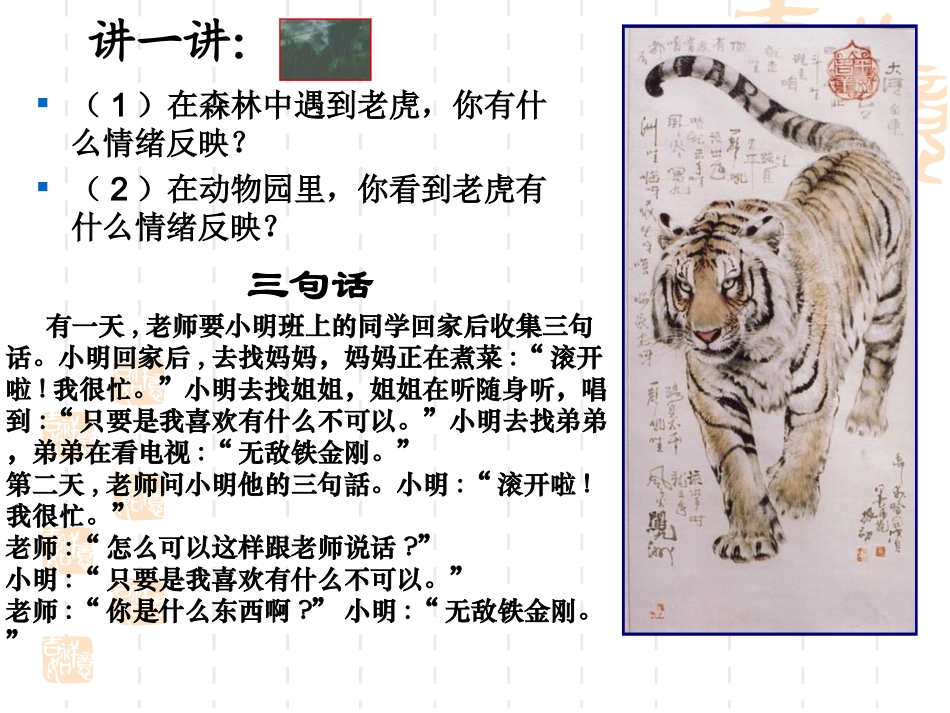 讲一讲：
（1）在森林中遇到老虎，你有什
么情绪反映？
（2）在动物园里，你看到老虎有
什么情绪反映？
三句话
有一天,老师要小明班上的同学回家后收集三句
话。小明回家后,去找妈妈，妈妈正在煮菜:“滚开
啦!我很忙。”小明去找姐姐，姐姐在听随身听，唱
到:“只要是我喜欢有什么不可以。”小明去找弟弟
，弟弟在看电视:“无敌铁金刚。”
第二天,老师问小明他的三句話。小明:“滚开啦!
我很忙。”
老师:“怎么可以这样跟老师说话?”
小明:“只要是我喜欢有什么不可以。”
老师:“你是什么东西啊?” 小明:“无敌铁金刚。
”